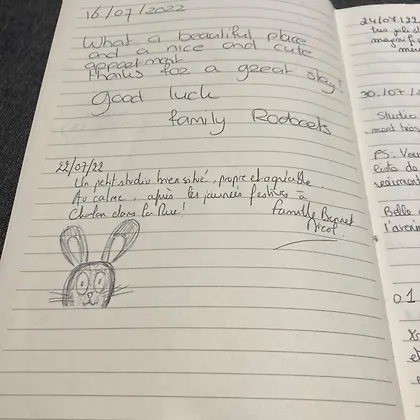 16/07/2022
What a beautiful place
and a nice and cute
appartment
thanks for a great stay!
good luck
family Roobaets
22/07/22
Un petit studio bien situé, propre et agréable
Au calme, après les journées festives à
Chalon dans la Rue!
Famille Bonnet
Nicol
24/07/22
très joli
30/07/
Studio
mont
PS. Vou
liste de
vraiment
Belle
l'aven
01
et